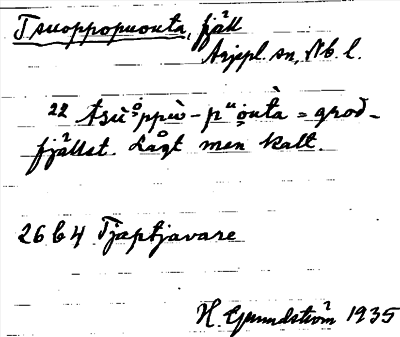 Tsuoppopuouta, fjäll
Arjepl. sn, Nb. l.
22 tsù̥åppù - pᵘo̥utà = grod-
fjället. Lågt men kalt.
26 b 4 Tjaptjavare
H. Grundström 1935